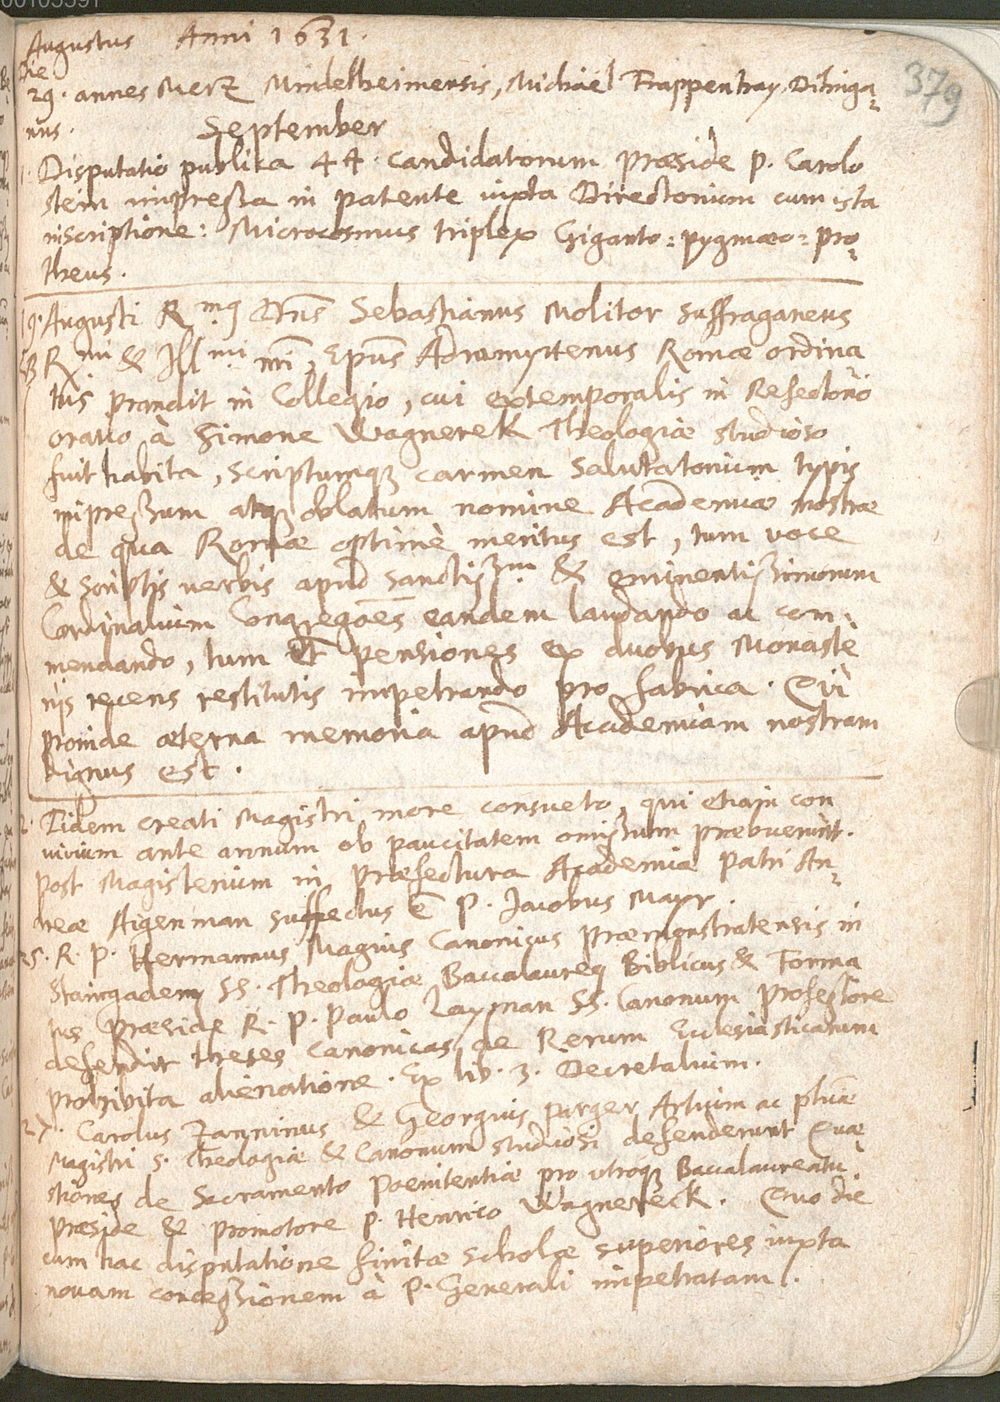 00105591
379
Augustus Anni 1631.
Die
29. annes Merz Mindelheimensis, Michaël Trappentray Dilinga=
nus.
September
1. Disputatio publica 44. candidatorum præside P. Carolo
Stein impressa in patente iuxta Directorium cum ista
inscriptione: Microcosmus triplex Giganto=pygmæo=pro=
theus.
19. Augusti Rmq Dns Sebastianus Molitor Suffraganeus
Rmi & Illmi nri, Epus Adramyttenus Romæ ordina
tus prandit in Collegio, cui extemporalis in Refectorio
oratio à Simone Wagnerek Theologiæ studioso
fuit habita, scriptumq carmen salutatorium typis
impressum atq oblatum nomine Academiæ nostræ
de qua Romæ optimè meritus est, tum voce
& scriptis verbis apud Sanctissm & eminentissimorum
Cardinalium Congregoes eandem laudando ac com=
mendando, tum et pensiones ex duobus Monaste
riis recens restitutis impetrando pro fabrica. Qui
proinde æterna memoria apud Academiam nostram
dignus est.
2. Iidem creati Magistri more consueto, qui etiam con
vivium ante annum ob paucitatem omissum præbuerunt.
Post Magisterium in præfectura Academiæ Patri An=
dreæ Aigenman suffectus e P. Jacobus Mayr.
25. R. P. Hermannus Magius Canonicus Præmonstratensis in
Staingadem SS. Theologiæ Baccalaureq Biblicus & Forma
tus præside R. P. Paulo Layman SS. Canonum professore
defendit theses canonicas de Rerum Ecclesiasticarum
prohibita alienatione. Ex lib. 3. Decretalium.
27. Carolus Zanninus & Georgius purger Artium ac phiæ
Magistri S. Theologiæ & Canonum studiosi defenderunt Quæ
stiones de Sacramento Poenitentiæ pro utroq Baccalaureatu.
Præside & promotore P. Henrico Wagnereck. Quo die
cum hac disputatione finitæ scholæ superiores iuxta
novam concessionem à P. Generali impetratam.